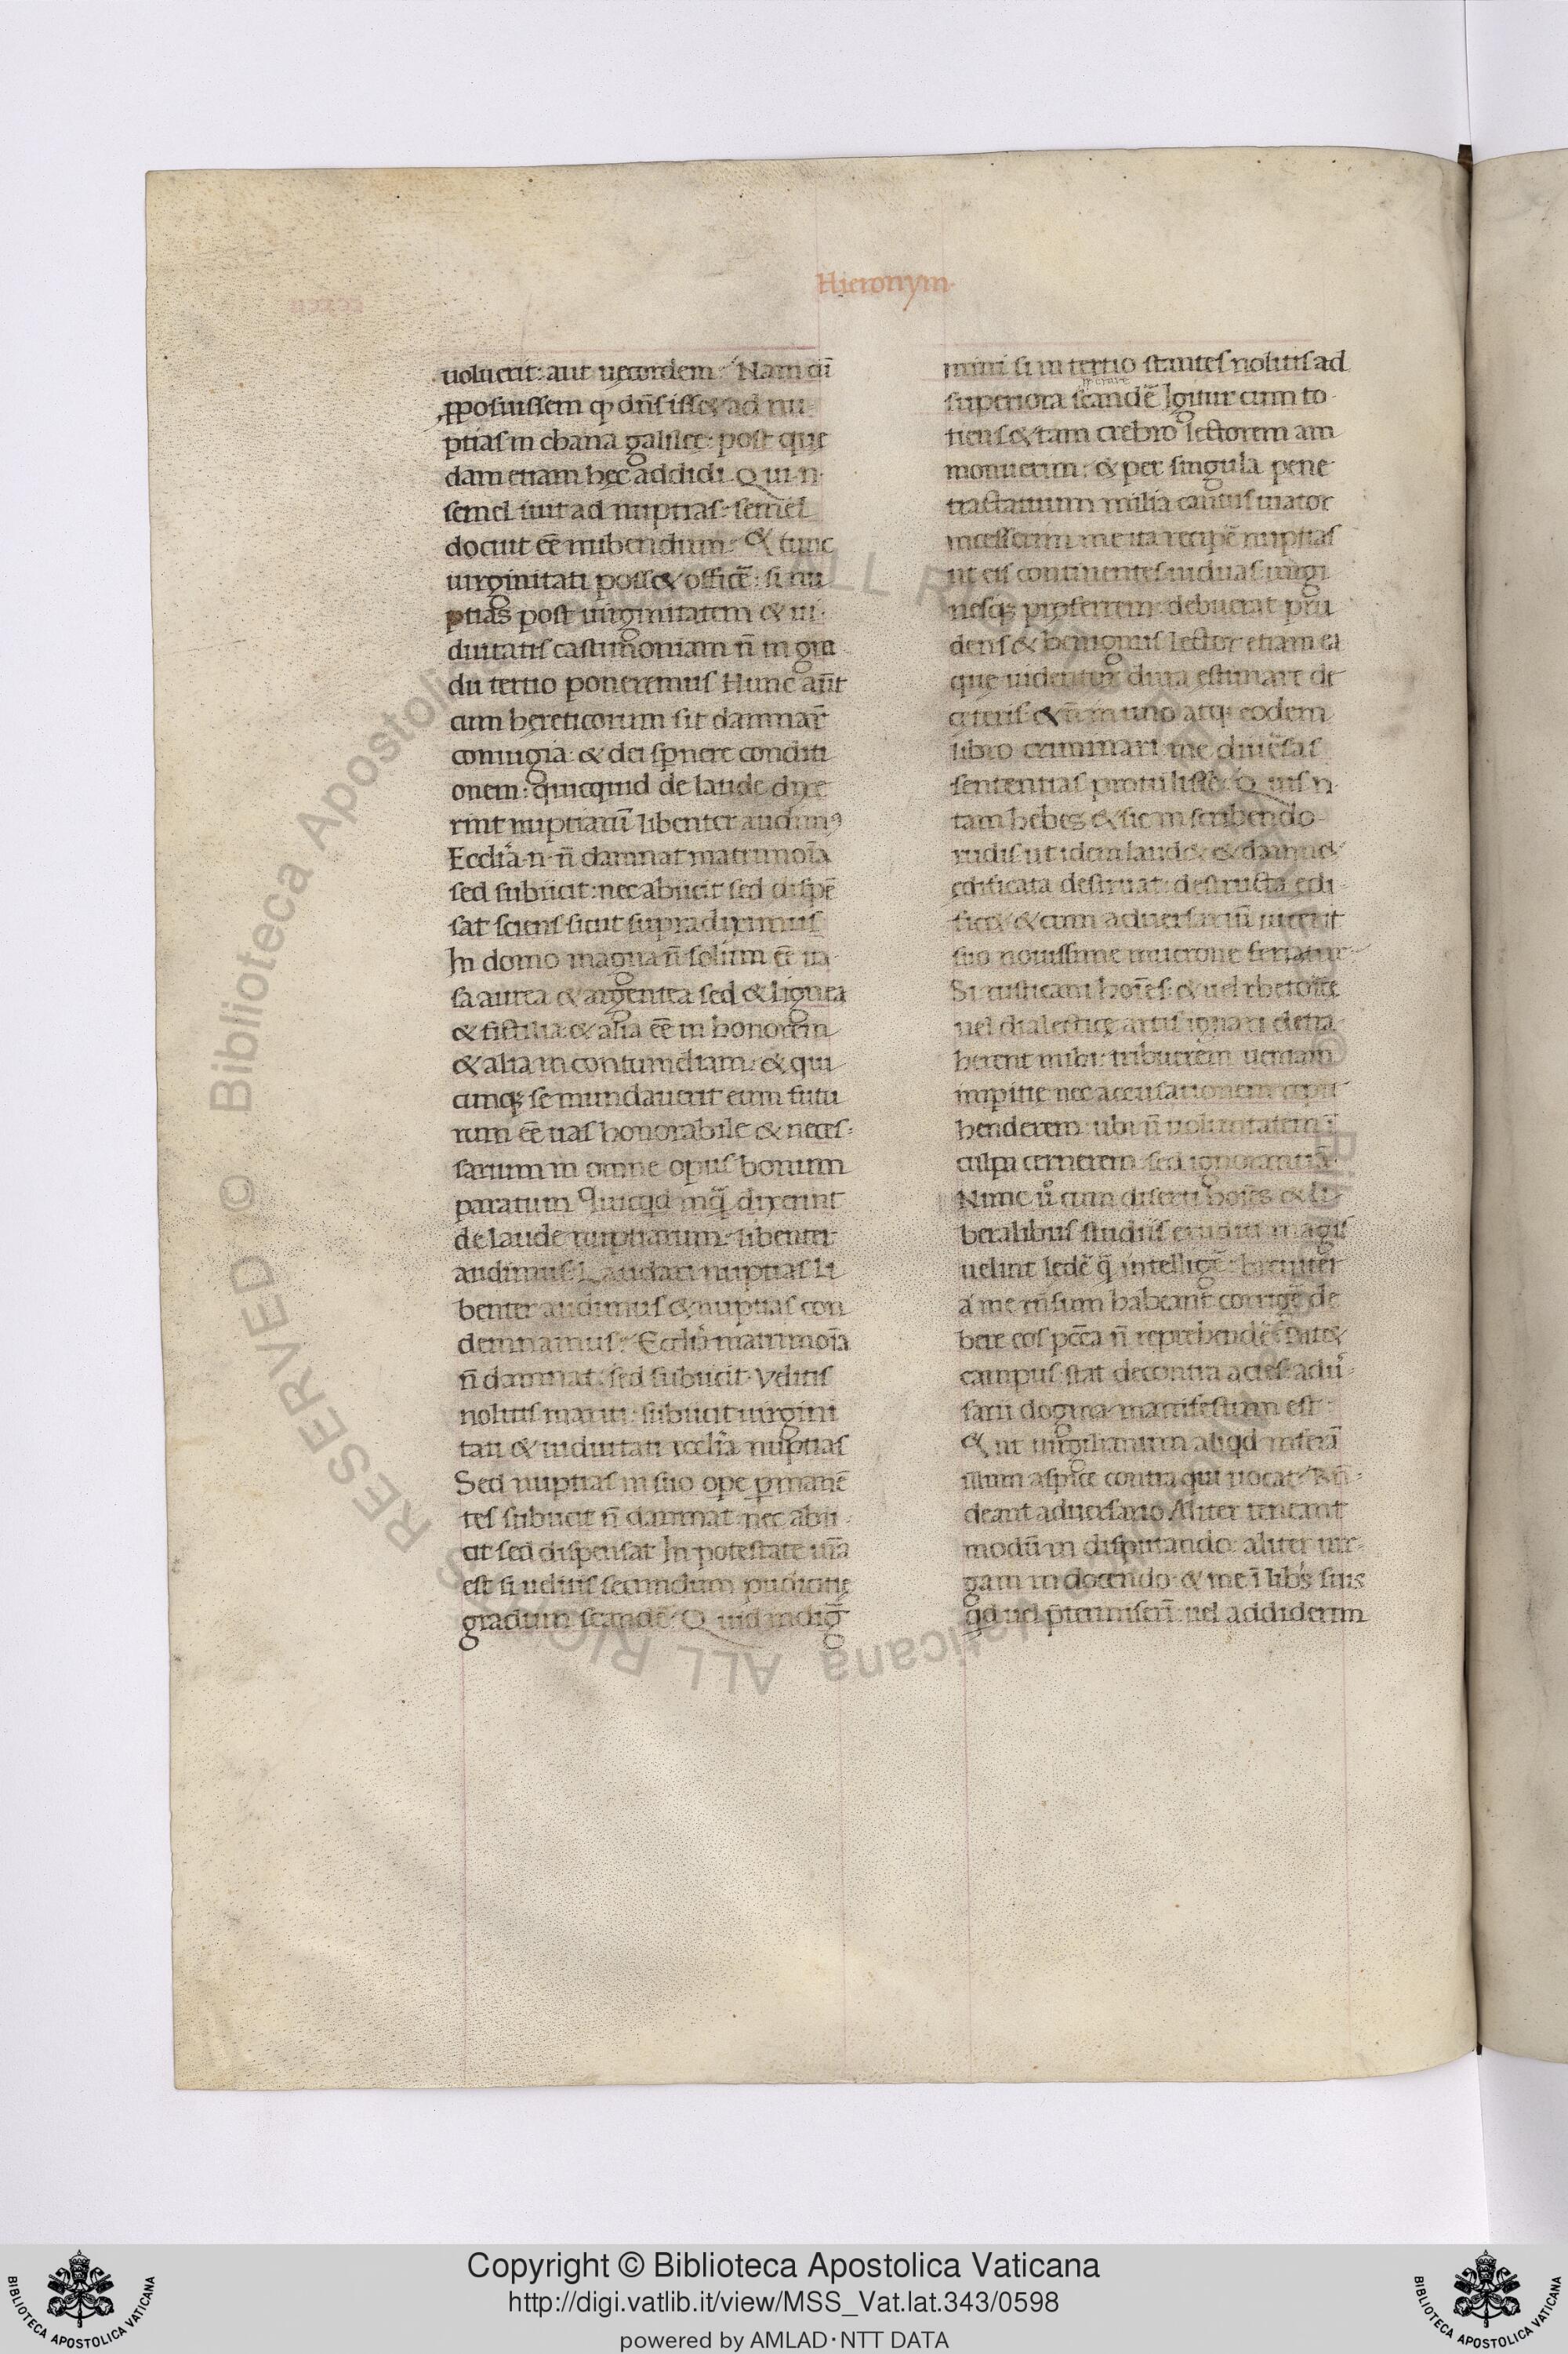 Hieronym·
uoluerit: aut uecordem. Nam cū
ꝓposuissem ꝙ dn̄s isset ad nu
ptias in chana galilee: post que
dam etiam hec addidi. Qui n·
semel iuit ad nuptias: semel
docuit eē nubendum. Et tunc
uirginitati posset officē: si nu
ptias post uirginitatem & ui·
duitatis castimoniam n̄ in gra
du tertio poneremus Hunc aūt
cum hereticorum sit damnar̄
coniugia: & dei spnere conditi
onem: quicquid de laude dixe
rint nuptiarū libenter audimꝰ
Ecclīa·n·n̄ damnat matrimoīa
sed subiicit: nec abiicit sed dispē
sat sciens sicut supradiximus
In domo magna n̄ solum eē ua·
sa aurea & argentea sed & lignea
& fictilia: & alia eē in honorem
& alia in contumeliam: & qui
cunqꝫ se mundauerit eum futu
rum eē uas honorabile & neces·
sarium in omne opus bonum
paratum Quicqd inq̄ dixerint
de laude nuptiarum: libenter
audimus: Laudari nuptias li
benter audimus & nuptias con
demnamus: Ecclīa matrimoīa
n̄ damnat: sed subiicit. Velitis
nolitis mariti: subiicit uirgini
tati & uiduitati ecclīa nuptias
Sed nuptias in suo ope ꝑmanē
tes subiicit n̄ damnat nec abii·
cit sed dispensat In potestate ur̄a
est si uelitis secundum pudicitie
gradum scandē. Quid indiḡ
mini si in tertio stantes nolitis ad
superiora scandē Igitur cum to·
tiens & tam crebro lectorem am
monuerim: & per singula pene
tractatuum milia cautus uiator
incesserim me ita recipē nuptias
ut eis continentes uiduas uirgi
nesqꝫ proferrem: debuerat pru
dens & benignus lector etiam ea
que uidentur dura estimare de
ceteris: & n̄ in uno atqꝫ eodem
libro criminari me diuersas
sententias protulisse. Quis n·
tam hebes & sic in scribendo
rudis ut idem laudet & damnet
edificata destruat: destructa edi·
ficet & cum aduersariū uicerit
suo nouissime mucrone feriatur·
Si rusticani hoīes: & uel rhetorice
uel dialectice artis ignari detra·
herent mihi: tribuerem ueniam
impitie nec accusationem repre
henderem: ubi n̄ uoluntatem ī
culpa cernerem sed ignorantiā
Nunc u̾ cum diserti hoīes & li
beralibus studiis eruditi magis
uelint ledē q̄ intelligē: breuiter
a me rn̄sum habeant corrigē de
bere eos pcc̄a n̄ reprehendē. Patet
campus: stat de contra acies: adu̾·
sarii dogma manifestum est
Et ut uirgilianum aliqd inserā
illum aspice contra qui uocat: Rn̄·
deant aduersario. Aliter teneant
modū in disputando: aliter uir·
gam in docendo: & me ī libs̄ suis
qd uel p̄termiserī: uel addiderim
Copyright © Biblioteca Apostolica Vaticana
http://digi.vatlib.it/view/MSS_Vat.lat.343/0598
powered by AMLAD·NTT DATA
BIBLIOTECA APOSTOLICA VATICANA
BIBLIOTECA APOSTOLICA VATICANA